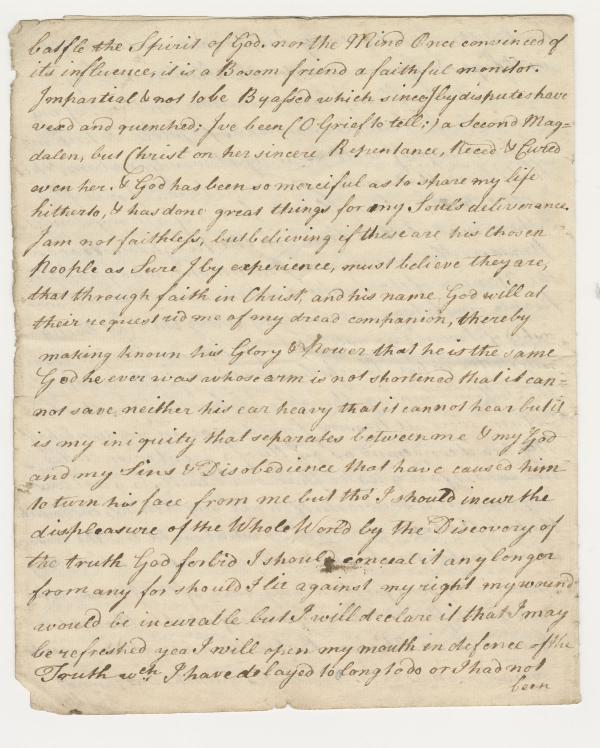 baffle the Spirit of God. nor the Mind Once convinced of
its influence, it is a Bosom friend a faithful monitor.
Impartial & not to be Byassed which since I by disputes have
vexd and quenched; I've been (O Grief to tell;) a Second Mag=
dalen, but Christ on her sincere Repentance, Reced & Cured
even her. & God has been so merciful as to spare my life
hitherto, & has done great things for my Soul's deliverance.
I am not faithless, but believing if these are his Chosen
People as Sure I by experience, must believe they are,
that through faith in Christ, and his name God will at
their request rid me of my dread companion, thereby
making known his Glory & Power that he is the same
God he ever was whose arm is not shortened that it can=
not save, neither his ear heavy that it cannot hear but it
is my iniquity that separates between me & my God
and my Sins & Disobedience that have caused him
to turn his face from me but tho' I should incur the
displeasure of the Whole World by the Discovery of
the truth God forbid I should conceal it any longer
from any for should I lie against my right my wound
would be incurable but I will declare it that I may
be refreshed yea I will open my mouth in defence of the
Truth wch. I have delayed to long to do or I had not
been